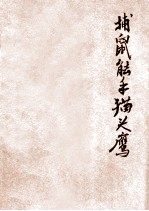 捕鼠能手猫头鹰